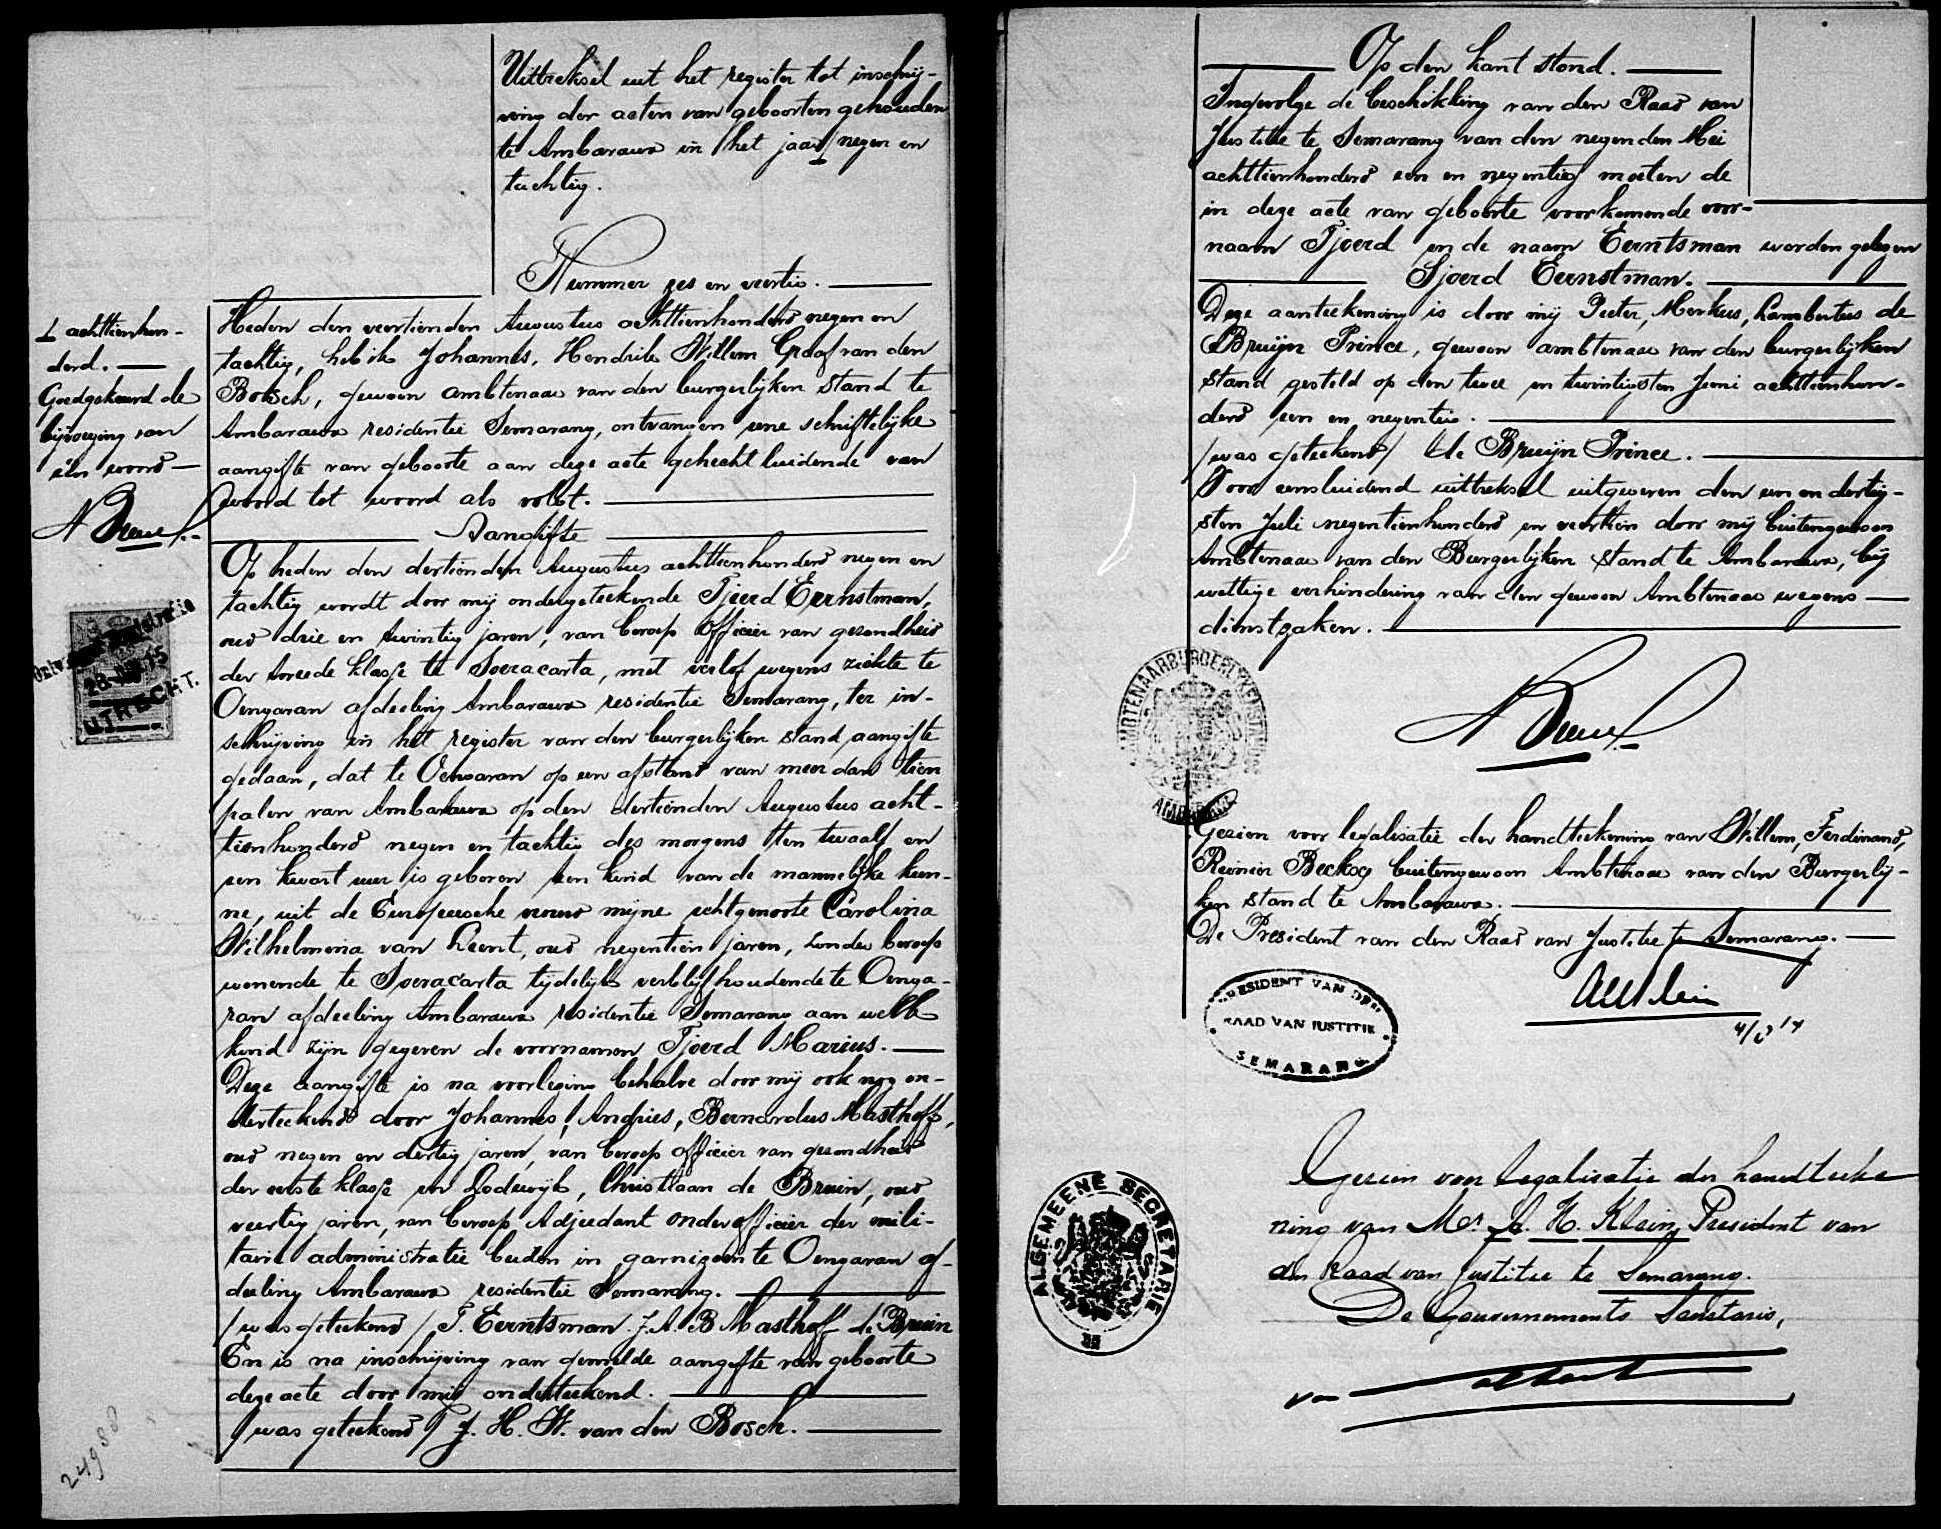 Uittreksel uit het register tot inschrij-
ving der acten van geboorten gehouden
te Ambarawa in het jaar ⊥ negen en
tachtig.
Nummer zes en veertig.
⊥ achttienhon-
derd.
Goedgekeurd de
bijvoeging van
één woord
Heden den veertienden Augustus achttienhonderd negen en
tachtig, heb ik Johannes, Hendrik Willem Graaf van den
Bosch, gewoon ambtenaar van den burgerlijken stand te
Ambarawa residentie Semarang, ontvangen eene schriftelijke
aangifte van geboorte aan deze acte gehecht luidende van
woord tot woord als volgt.
Aangifte
Op heden den dertienden Augustus achttienhonderd negen en
tachtig wordt door mij ondergeteekende Tjeerd Eernstman,
oud drie en twintig jaren, van beroep Officier van gezondheid
der tweede klasse te Soeracarta, met verlof wegens ziekte te
Oengaran afdeeling Ambarawa residentie Semarang, ter in-
schrijving in het register van den burgerlijken stand, aangifte
gedaan, dat te Oengaran op een afstand van meer dan tien
palen van Ambarawa op den dertienden Augustus acht-
tienhonderd negen en tachtig des morgens ten twaalf en
een kwart uur, is geboren een kind van de mannelijke kun-
ne, uit de Europeesche vrouw mijne echtgenoote Carolina
Wilhelmina van Leent, oud negentien jaren, zonder beroep
wonende te Soeracarta tijdelijk verblijfhoudende te Oenga-
ran afdeeling Ambarawa residentie Semarang aan welk
kind zijn gegeven de voornamen Tjoerd Marius.
Deze aangifte is na voorlezing behalve door mij ook nog on-
derteekend door Johannes, Andries, Bernardus Masthoff,
oud negen en dertig jaren, van beroep officier van gezondheid
der eerste klasse en Lodewijk, Christiaan de Bruin, oud
veertig jaren, van beroep Adjudant onderofficier der mili-
taire administratie beiden in garnizoen te Oengaran af-
deeling Ambarawa residentie Semarang.
/was geteekend/ T. Eerntsman. J. A. B Masthoff de Bruin
En is na inschrijving van gemelde aangifte van geboorte
deze acte door mij onderteekend.
/was geteekend/ J. H. W. van den Bosch.
UTRECHT.
24980
Op den kant stond.
Ingevolge de beschikking van den Raad van
Justitie te Semarang van den negenden Mei
achttienhonderd een en negentig moeten de
in deze acte van geboorte voorkomende voor-
naam Tjoerd en de naam Eerntsman worden gelezen
Sjoerd Eernstman.
Deze aanteekening is door mij Pieter, Merkus, Lambertus de
Bruijn Prince, gewoon ambtenaar van den burgerlijken
stand gesteld op den twee en twintigsten Juni achttienhon-
derd een en negentig.
/was geteekend/ de Bruijn Prince.
Voor eensluidend uittreksel uitgegeven den een en dertig-
sten Juli negentienhonderd en veertien door mij buitengewoon
Ambtenaar van den Burgerlijken stand te Ambarawa, bij
wettige verhindering van den gewoon Ambtenaar wegens
dienstzaken.
AMBTENAAR BURGERLYKEN STAND
AMBARAWA
Gezien voor legalisatie der handteekening van Willem, Ferdinand,
Reinier Becking buitengewoon Ambtenaar van den Burgerlij-
ken stand te Ambarawa.
De President van den Raad van Justitie te Semarang.
PRESIDENT VAN DEN
RAAD VAN JUSTITIE
SEMARANG
Gezien voor legalisatie der handteeke
ning van Mr. A. H. Klein, President van
den Raad van Justitie te Semarang.
De Gouvernements Secretaris,
ALGEMEENE SECRETARIE